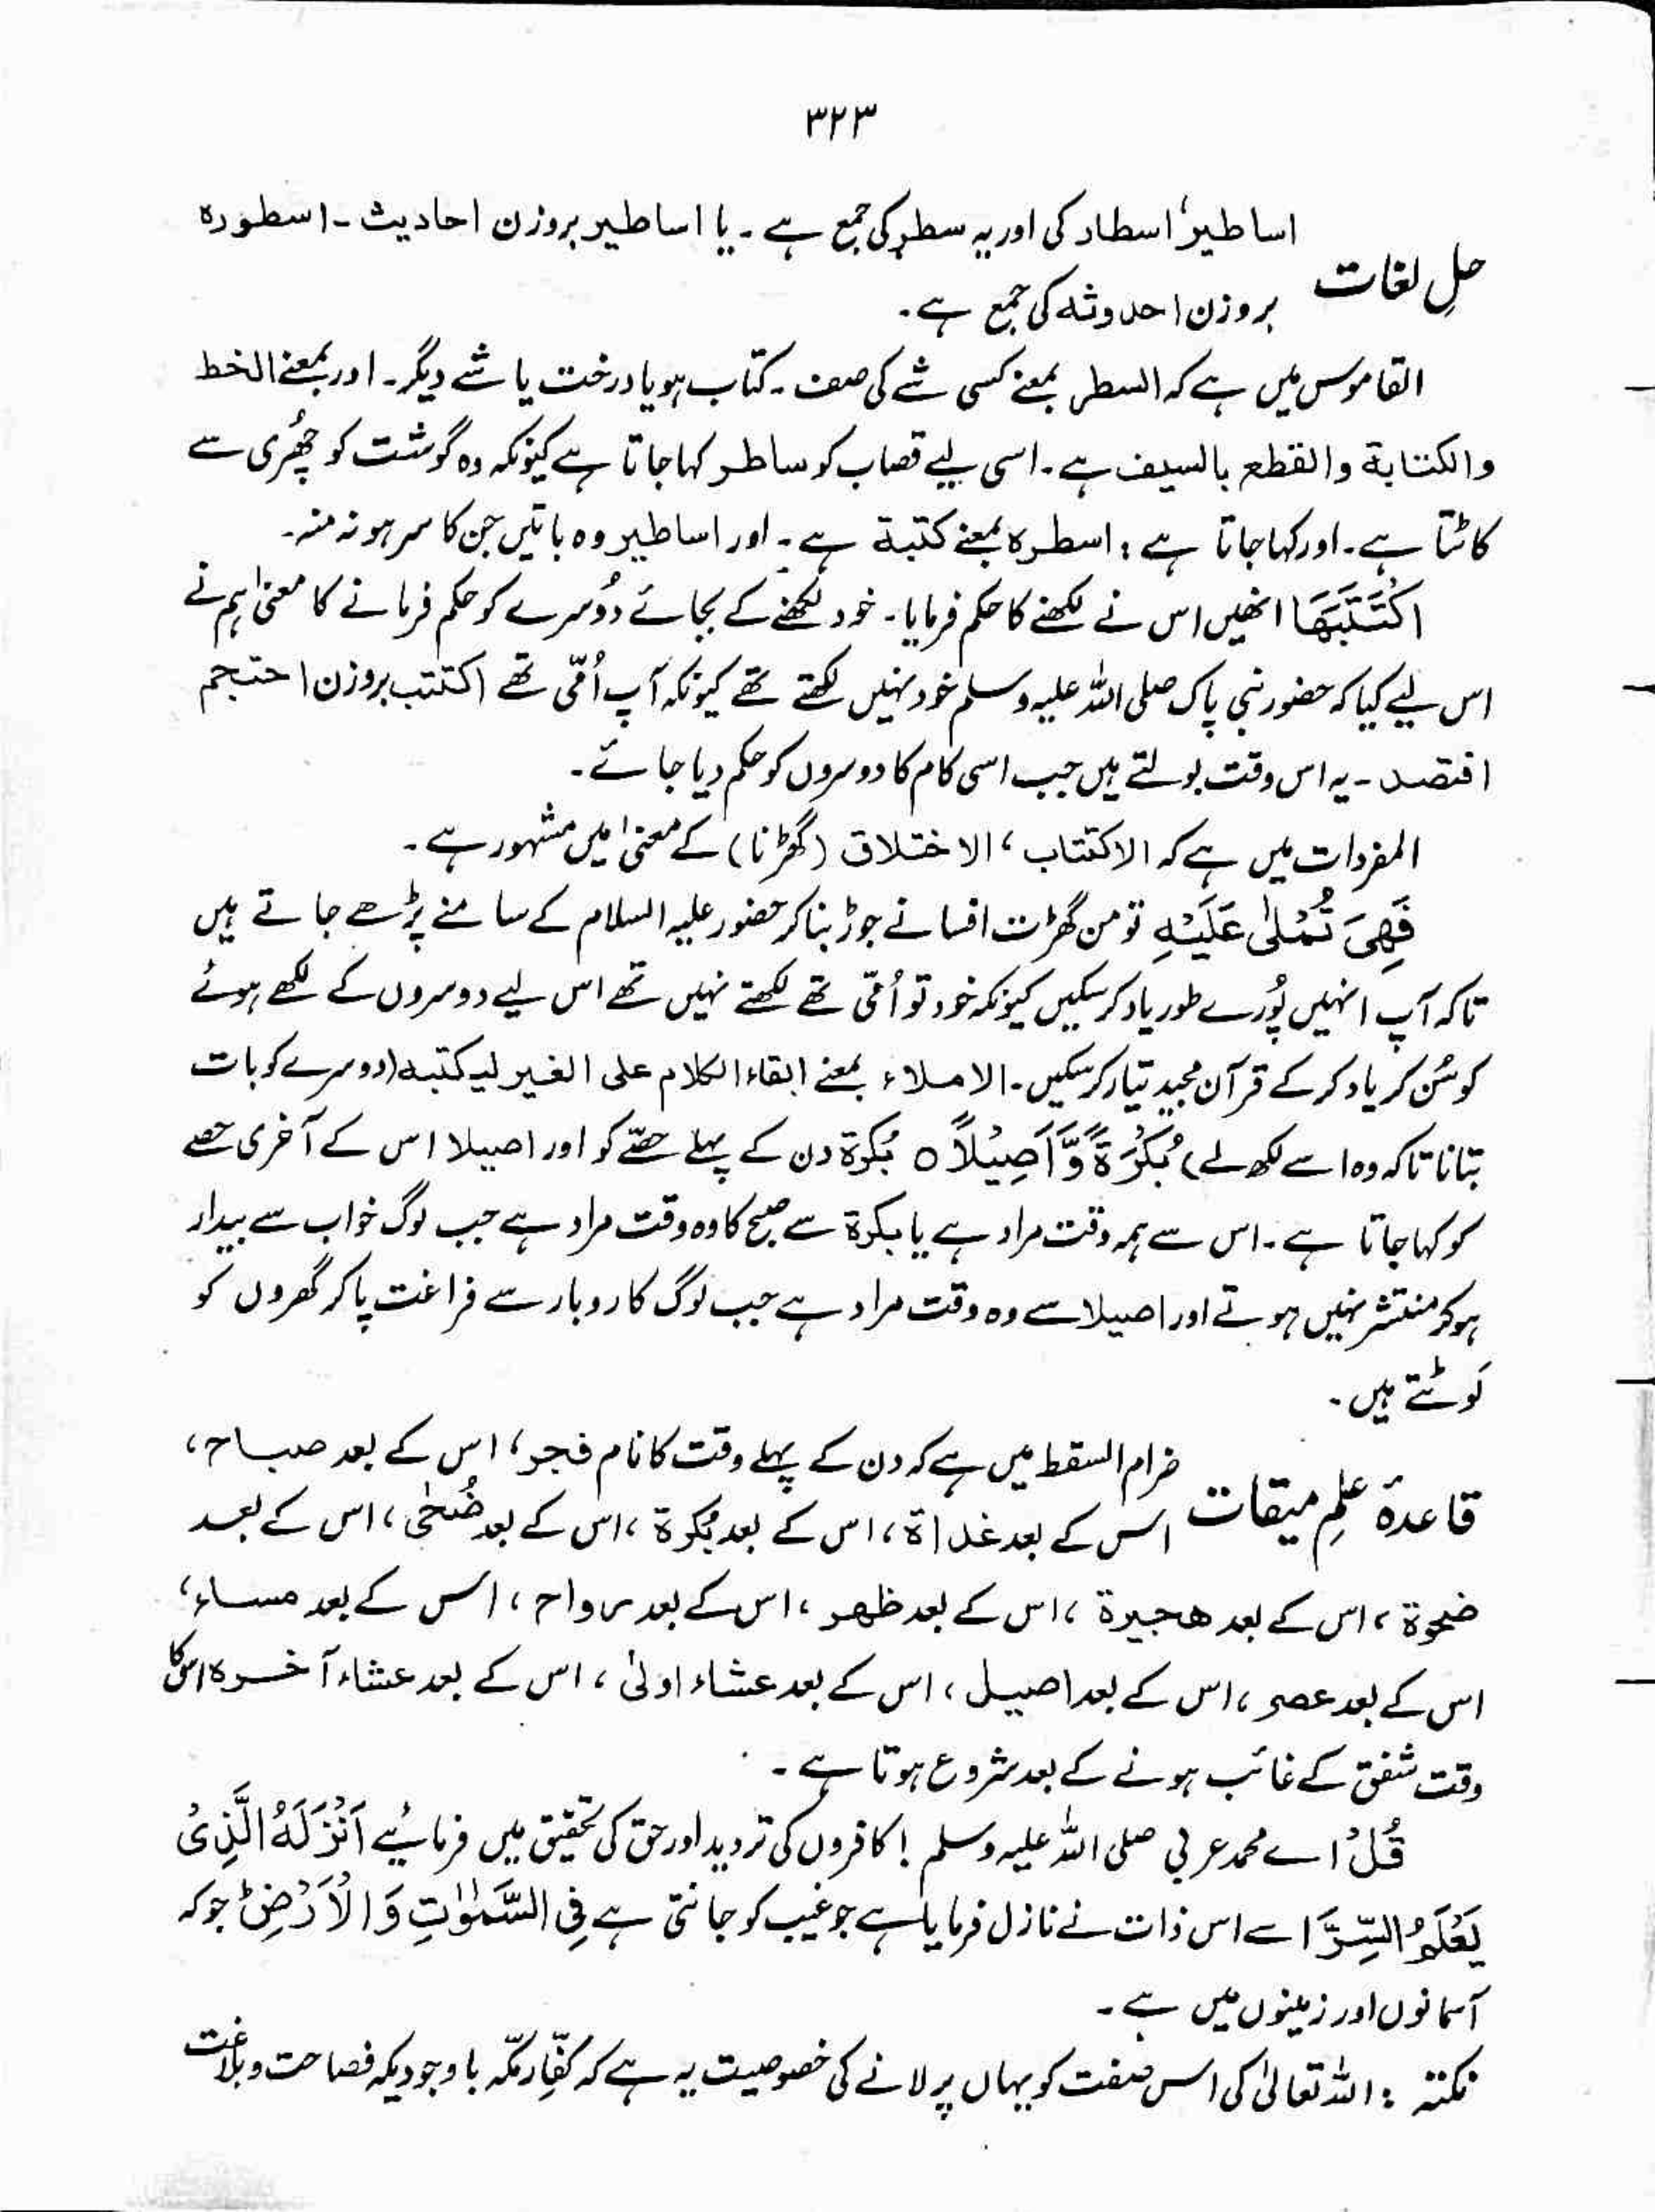 ۳۲۳
اساطیر، اسطار کی اور یہ سطر کی جمع ہے ۔ یا اساطیر بروزن احادیث ۔ اسطورہ
حلِ لغات
بروزن احدوثہ کی جمع ہے ۔
القاموس میں ہے کہ السطر بمعنے کسی شے کی صف ۔ کتاب ہو یا درخت یا شے دیگر ۔ اور بمعنے الخط
والکتابۃ والقطع بالسیف ہے ۔ اسی لیے قصاب کو ساطر کہا جاتا ہے کیونکہ وہ گوشت کو چھُری سے
کاٹتا ہے ۔ اور کہا جاتا ہے : اسطرہ بمعنے کتبۃ ہے ۔ اور اساطیر وہ باتیں جن کا سر ہو نہ منہ ۔
اکْتَتَبَهَا انھیں اس نے لکھنے کا حکم فرمایا ۔ خود لکھنے کے بجائے دُوسرے کو حکم فرمانے کا معنیٰ ہم نے
اس لیے کیا کہ حضور نبی پاک صلی اللہ علیہ وسلم خود نہیں لکھتے تھے کیونکہ آپ اُمّی تھے اکتتب بروزن احتجم
افتصد ۔ یہ اس وقت بولتے ہیں جب اسی کام کا دوسروں کو حکم دیا جائے ۔
المفردات میں ہے کہ الاکتتاب ، الاختلاق (گھڑنا) کے معنیٰ میں مشہور ہے ۔
فَهِیَ تُمْلٰی عَلَیْهِ تو من گھڑت افسانے جوڑ بنا کر حضور علیہ السلام کے سامنے پڑھے جاتے ہیں
تاکہ آپ انہیں پُورے طور یاد کر سکیں کیونکہ خود تو اُمّی تھے لکھتے نہیں تھے اس لیے دوسروں کے لکھے ہوئے
کو سُن کر یاد کر کے قرآن مجید تیار کر سکیں ۔ الاملاء بمعنے ابقاء الکلام علی الغیر لیکتبہ (دوسرے کو بات
بتانا تاکہ وہ اسے لکھ لے) بُکْرَةً وَّاَصِیْلًا ۝ بُکرۃ دن کے پہلے حصّے کو اور اصیلا اس کے آخری حصے
کو کہا جاتا ہے ۔ اس سے ہمہ وقت مراد ہے یا بکرۃ سے صبح کا وہ وقت مراد ہے جب لوگ خواب سے بیدار
ہو کر منتشر نہیں ہوتے اور اصیلا سے وہ وقت مراد ہے جب لوگ کاروبار سے فراغت پا کر گھروں کو
لَوٹتے ہیں ۔
خرام السقط میں ہے کہ دن کے پہلے وقت کا نام فجر ، اس کے بعد صباح ،
قاعدۂ علمِ میقات
اس کے بعد غداۃ ، اس کے بعد بُکرۃ ، اس کے بعد ضُحٰی ، اس کے بعد
ضحوۃ ، اس کے بعد ھجیرۃ ، اس کے بعد ظھر ، اس کے بعد رواح ، اس کے بعد مساء ،
اس کے بعد عصر ، اس کے بعد اصیل ، اس کے بعد عشاء اولیٰ ، اس کے بعد عشاء آخرہ اس کا
وقت شفق کے غائب ہونے کے بعد شروع ہوتا ہے ۔
قُلْ اے محمد عربی صلی اللہ علیہ وسلم ! کافروں کی تردید اور حق کی تحقیق میں فرمائیے اَنْزَلَهُ الَّذِیْ
یَعْلَمُ السِّرَّ اسے اس ذات نے نازل فرمایا ہے جو غیب کو جانتی ہے فِی السَّمٰوٰتِ وَالْاَرْضِ ؕ جو کہ
آسمانوں اور زمینوں میں ہے ۔
نکتہ : اللہ تعالیٰ کی اس صفت کو یہاں پر لانے کی خصوصیت یہ ہے کہ کفّارِ مکّہ باوجودیکہ فصاحت و بلاغت